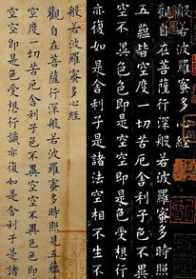 般若波羅蜜多心經
觀自在菩薩行深般若波羅蜜多時照見
五蘊皆空度一切苦厄舍利子色不異
空空不異色色即是空空即是色受想行
亦復如是舍利子是諸法空相不生不
般若波羅蜜多心經
觀自在菩薩行深般若波羅蜜多時照見五蘊
空度一切苦厄舍利子色不異空空不異色色
空空即是色受想行識亦復如是舍利子是